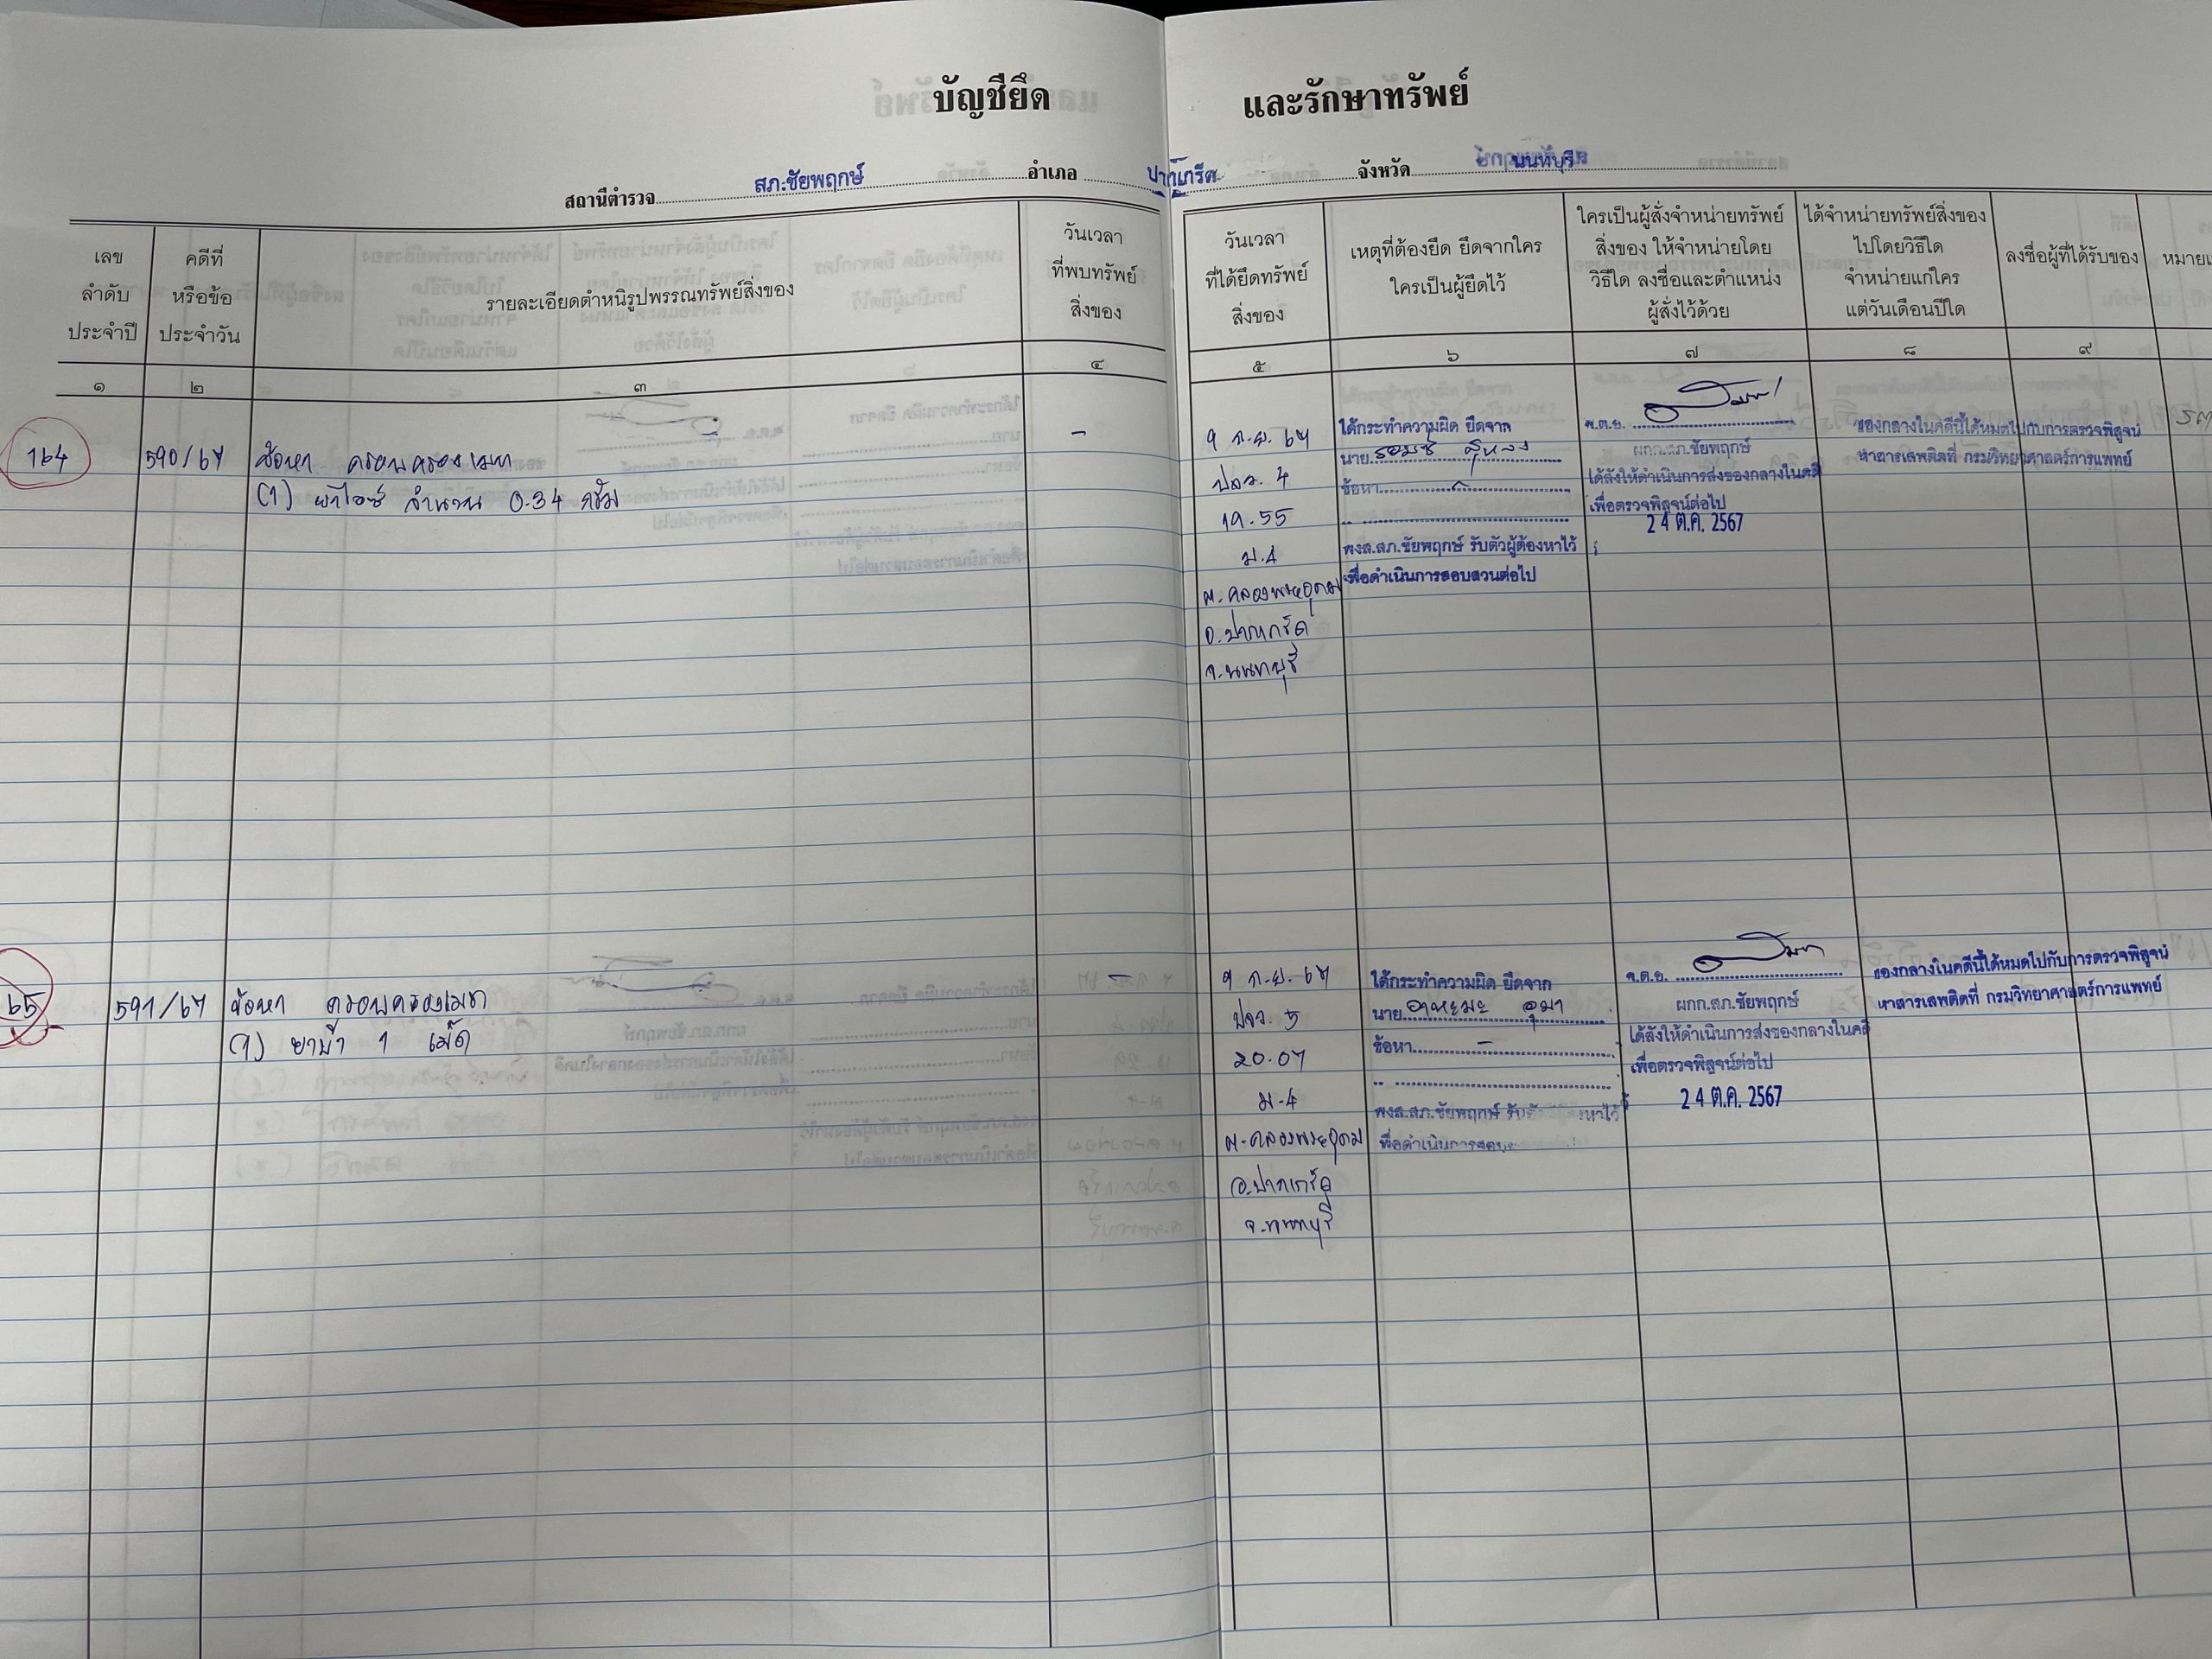 บัญชียึด และรักษาทรัพย์
สถานีตำรวจ สภ.ชัยพฤกษ์ อำเภอ ปากเกร็ด จังหวัด นนทบุรี
เลข
ลำดับ
ประจำปี
คดีที่
หรือข้อ
ประจำวัน
รายละเอียดตำหนิรูปพรรณทรัพย์สิ่งของ
วันเวลา
ที่พบทรัพย์
สิ่งของ
วันเวลา
ที่ได้ยึดทรัพย์
สิ่งของ
เหตุที่ต้องยึด ยึดจากใคร
ใครเป็นผู้ยึดไว้
ใครเป็นผู้สั่งจำหน่ายทรัพย์
สิ่งของ ให้จำหน่ายโดย
วิธีใด ลงชื่อและตำแหน่ง
ผู้สั่งไว้ด้วย
ได้จำหน่ายทรัพย์สิ่งของ
ไปโดยวิธีใด
จำหน่ายแก่ใคร
แต่วันเดือนปีใด
ลงชื่อผู้ที่ได้รับของ
๑ ๒ ๓ ๔ ๕ ๖ ๗ ๘ ๙
164
590/67
ข้อหา ครอบครองเมทา
(1) ยาไอซ์ จำนวน 0.34 กรัม
-
9 ก.ย. 67
ปจว. 4
19.55
ม.4
ต.คลองพระอุดม
อ.ปากเกร็ด
จ.นนทบุรี
ได้กระทำความผิด ยึดจาก
นาย
ข้อหา -
พงส.สภ.ชัยพฤกษ์ รับตัวผู้ต้องหาไว้
เพื่อดำเนินการสอบสวนต่อไป
พ.ต.อ.
ผกก.สภ.ชัยพฤกษ์
ได้สั่งให้ดำเนินการส่งของกลางในคดี
เพื่อตรวจพิสูจน์ต่อไป
24 ต.ค. 2567
ของกลางในคดีนี้ได้หมดไปกับการตรวจพิสูจน์
หาสารเสพติดที่ กรมวิทยาศาสตร์การแพทย์
65
591/67
ข้อหา ครอบครองเมทา
(1) ยาบ้า 1 เม็ด
-
9 ก.ย. 67
ปจว. 5
20.07
ม.4
ต.คลองพระอุดม
อ.ปากเกร็ด
จ.นนทบุรี
ได้กระทำความผิด ยึดจาก
นาย อุมา
ข้อหา -
พงส.สภ.ชัยพฤกษ์ รับ
เพื่อดำเนินการสอบ
พ.ต.อ.
ผกก.สภ.ชัยพฤกษ์
ได้สั่งให้ดำเนินการส่งของกลางในคดี
เพื่อตรวจพิสูจน์ต่อไป
24 ต.ค. 2567
ของกลางในคดีนี้ได้หมดไปกับการตรวจพิสูจน์
หาสารเสพติดที่ กรมวิทยาศาสตร์การแพทย์